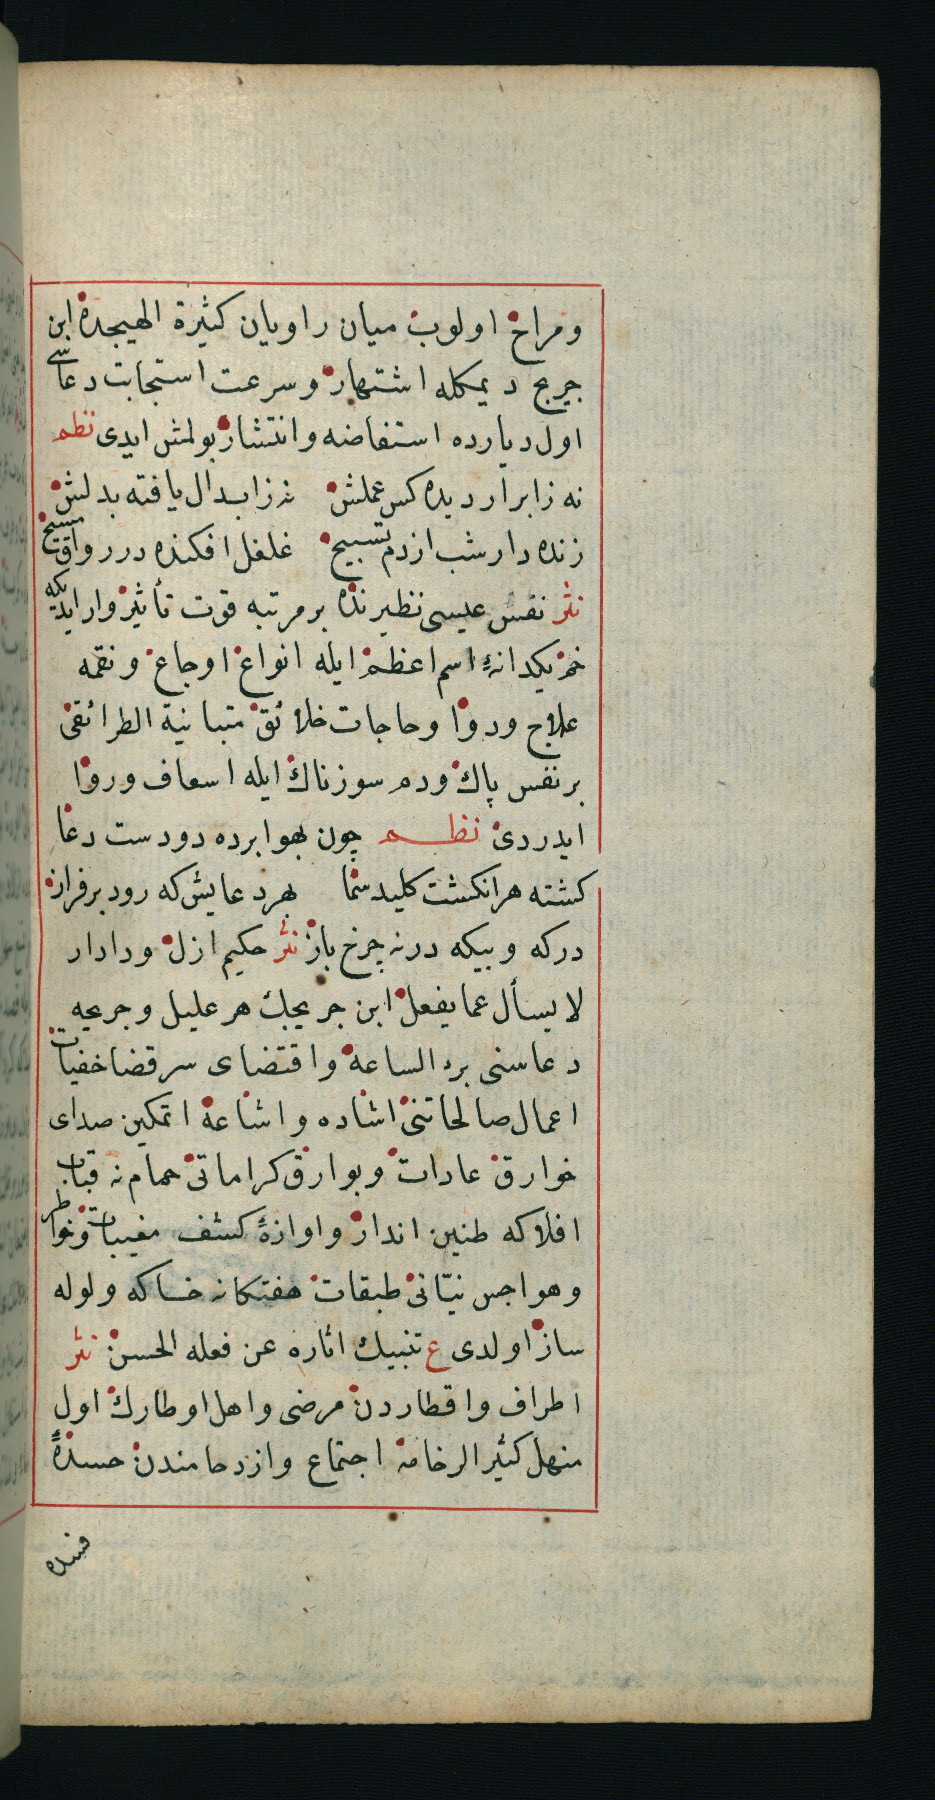 ومراخ اولوب ميان راويان كثيرة الهيجده ابن
جريج ديمكله اشتهار وسرعت استجابت دعاسى
اول ديارده استفاضه وانتشار بولمش ايدى نظم
نه ز ابرار ديده كس عملش نه ز ابدال يافته بدلش
زنده دار شب از دم تسبيح غلغل افكنده در رواق مسيح
نثر نفس عيسى نظيرنده بر مرتبه قوت تأثير وار ايديكه
خم يكدانهٔ اسم اعظم ايله انواع اوجاع ونقمه
علاج ودوا وحاجات خلائق متباينة الطرائقى
بر نفس پاك ودم سوزناك ايله اسعاف وروا
ايدردى نظم چون بهوا برده دو دست دعا
كشته هر انكشت كليد سما بهر دعايش كه رود بر فراز
دركه وبيكه در نه چرخ باز نثر حكيم ازل ودادار
لا يسأل عما يفعل ابن جريجك هر عليل وجريحه
دعاسنى برء الساعه واقتضاى سر قضا خفيات
اعمال صالحاتنى اشاده واشاعه اتمكين صداى
خوارق عادات وبوارق كراماتى حمام نه قباب
افلاكه طنين انداز واوازهٔ كشف مغيبات وخواطر
وهواجس نيّاتى طبقات هفتكانه خاكه ولوله
ساز اولدى ع تنبيك اثاره عن فعله الحسن نثر
اطراف واقطاردن مرضى واهل اوطارك اول
منهل كثير الزحامه اجتماع وازدحامندن حسدهٔ